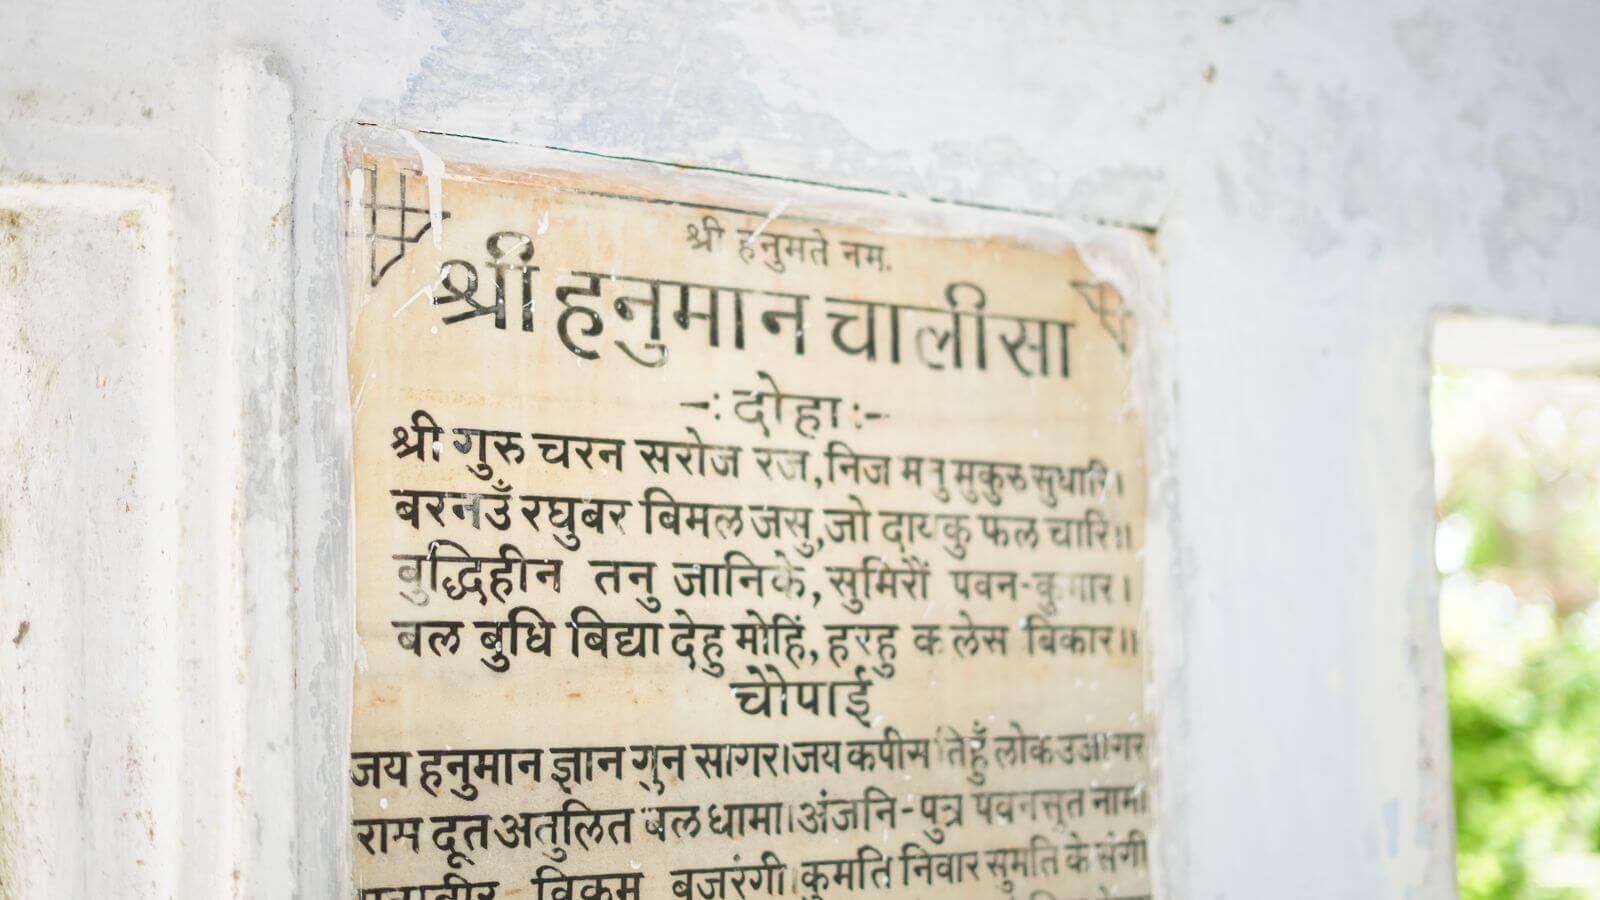 श्री हनुमते नम.
श्री हनुमान चालीसा
-: दोहा :-
श्री गुरु चरन सरोज रज, निज मनु मुकुरु सुधारि।
बरनउँ रघुबर बिमल जसु, जो दायकु फल चारि॥
बुद्धिहीन तनु जानिके, सुमिरौं पवन-कुमार।
बल बुधि बिद्या देहु मोहिं, हरहु कलेस बिकार॥
चौपाई
जय हनुमान ज्ञान गुन सागर। जय कपीस तिहुँ लोक उजागर
राम दूत अतुलित बल धामा। अंजनि-पुत्र पवनसुत नामा
विक्रम बजरंगी। कुमति निवार सुमति के संगी